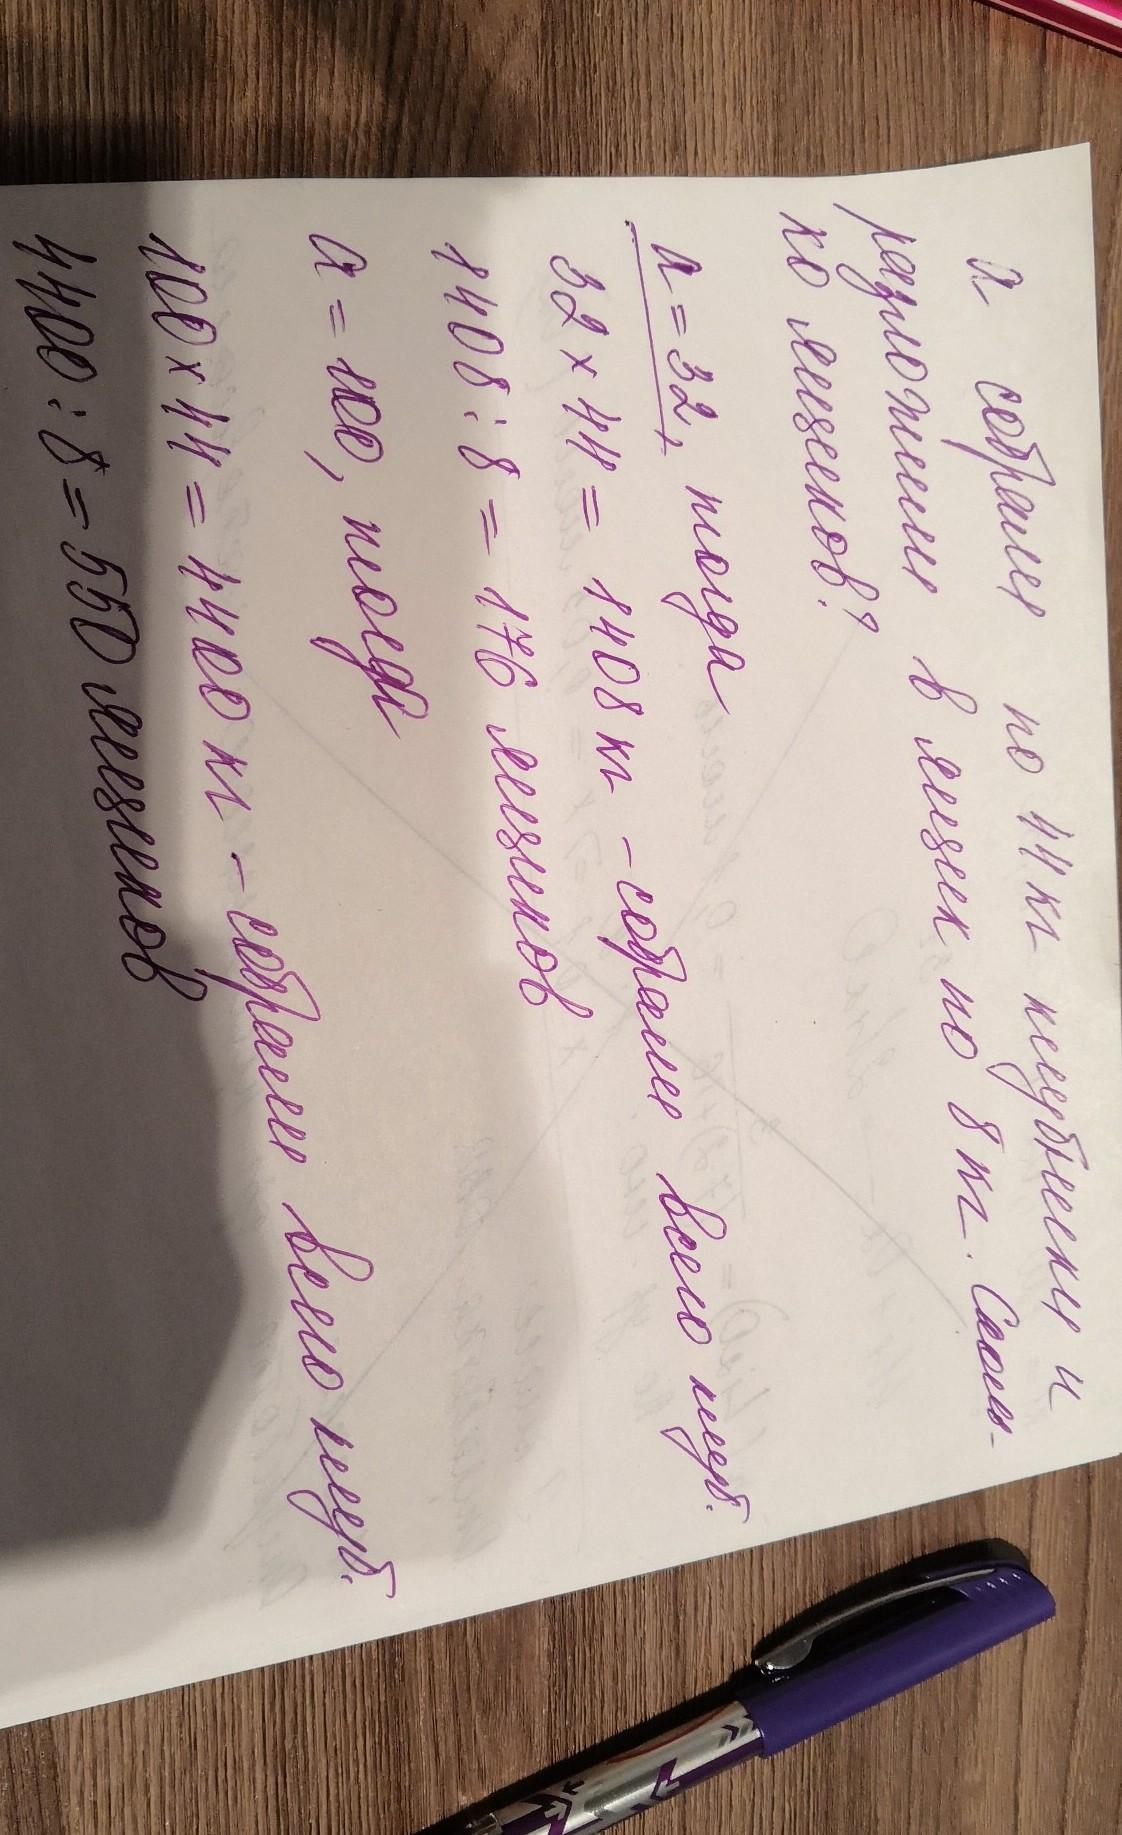 а собрали по 44 кг клубники и
разложили в ящики по 8 кг. Сколь-
ко ящиков?
а = 32, тогда
32 × 44 = 1408 кг - собрали всего клуб.
1408 : 8 = 176 ящиков
а = 100, тогда
100 × 44 = 4400 кг - собрали всего клуб.
4400 : 8 = 550 ящиков